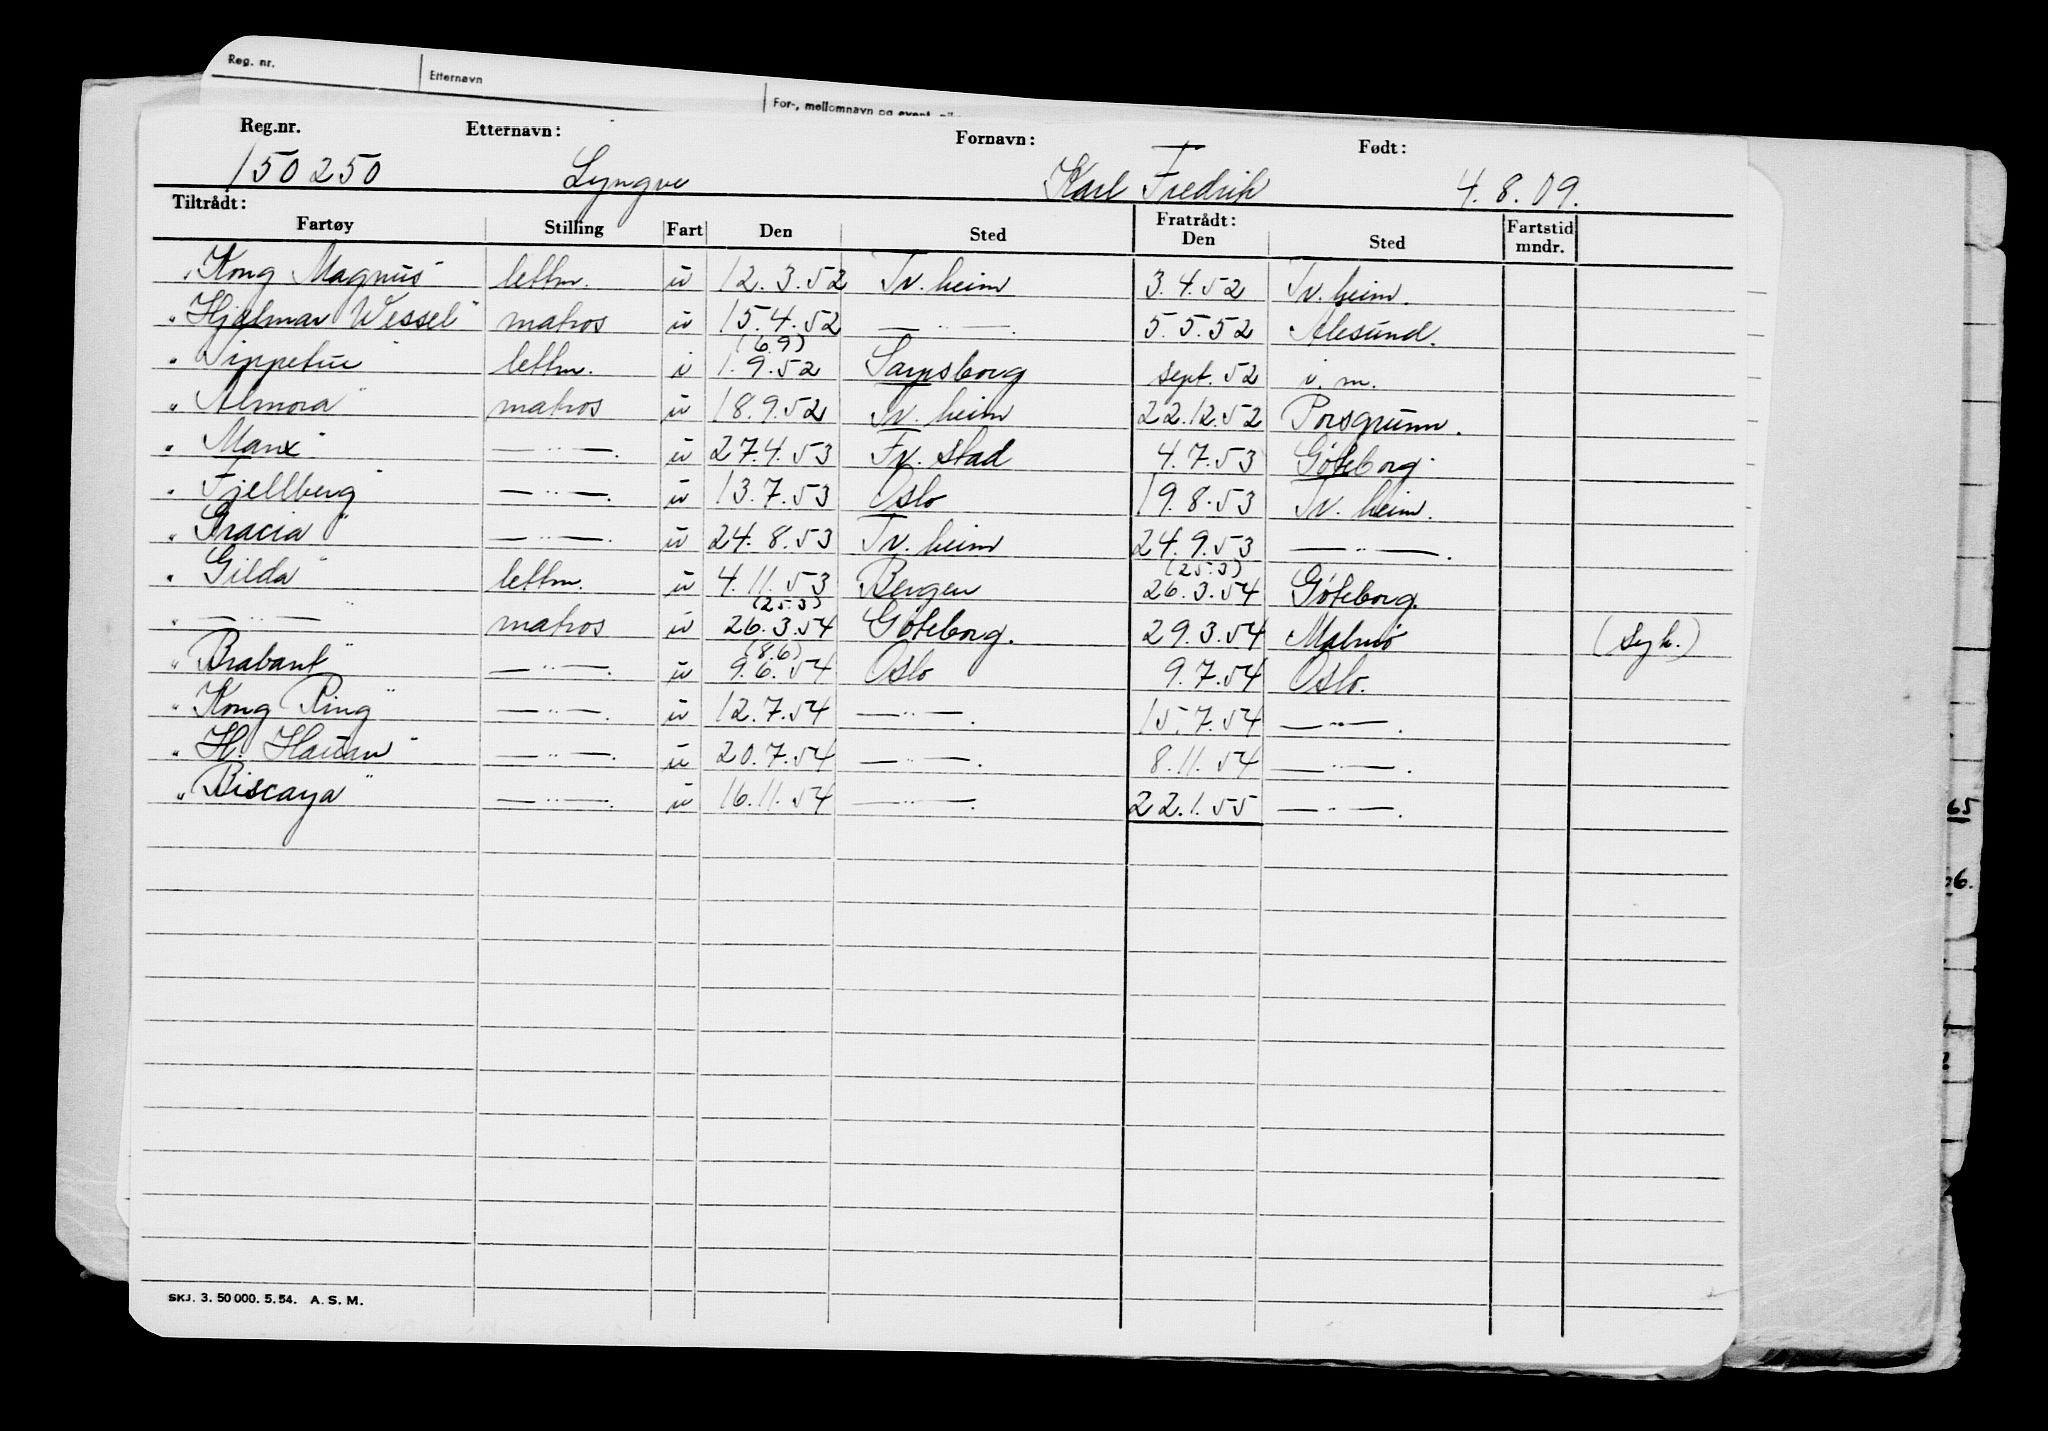 Reg. nr. Etternavn For-, mellomnavn og event.
Reg.nr. Etternavn: Fornavn: Født:
150250 Lyngve Karl Fredrik 4.8.09.
Tiltrådt: Fratrådt:
Fartøy Stilling Fart Den Sted Den Sted Fartstid mndr.
"Kong Magnus" lettm. u 12.3.52 Tr.heim 3.4.52 Tr.heim.
"Hjalmar Wessel" matros u 15.4.52 —"—. 5.5.52 Ålesund.
(6.9)
"Tippetue" lettm. i 1.9.52 Sarpsborg sept.52 i.m.
"Almora" matros u 18.9.52 Tr.heim 22.12.52 Porsgrunn.
"Manx" —"—. u 27.4.53 Fr.stad 4.7.53 Gøteborg.
"Fjellberg" —"—. u 13.7.53 Oslo 19.8.53 Tr.heim.
"Gracia" —"—. u 24.8.53 Tr.heim 24.9.53 —"—.
(25.3)
"Gilda" lettm. u 4.11.53 Bergen 26.3.54 Gøteborg.
(25.3)
" —"— " matros u 26.3.54 Gøteborg. 29.3.54 Malmø (syk.)
(8.6)
"Brabant" —"—. u 9.6.54 Oslo 9.7.54 Oslo.
"Kong Ring" —"—. u 12.7.54 —"—. 15.7.54 —"—.
"H. Hauan" —"—. u 20.7.54 —"—. 8.11.54 —"—.
"Biscaya" —"—. u 16.11.54 —"—. 22.1.55 —"—.
65
6.
SKJ. 3. 50 000. 5. 54. A. S. M.